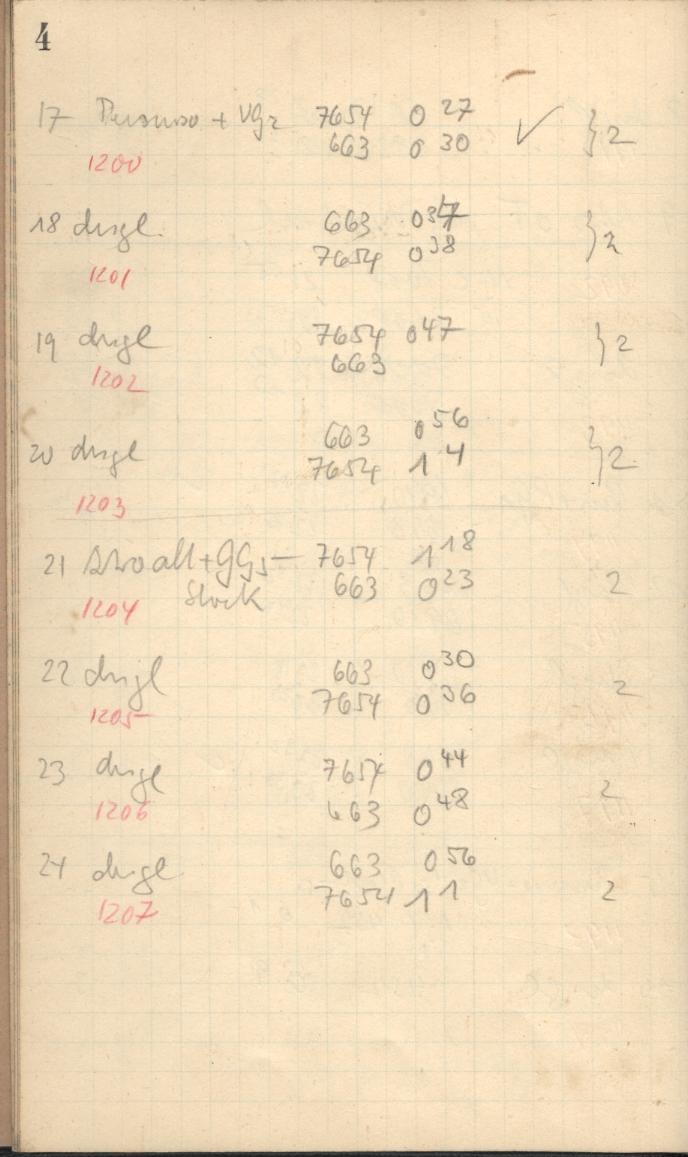 4
17 + VG2 7654 0 27 ✓ } 2
663 0 30
1200
18 dsgl. 663 0 37 } 2
7654 0 38
1201
19 dsgl 7654 0 47 } 2
663
1202
20 dsgl 663 0 56 } 2
7654 1 4
1203
21 alt + GG5 — 7654 1 18
Stock 663 0 23 2
1204
22 dsgl 663 0 30 2
7654 0 36
1205
23 dsgl 7654 0 44 2
663 0 48
1206
24 dsgl 663 0 56
7654 1 1 2
1207